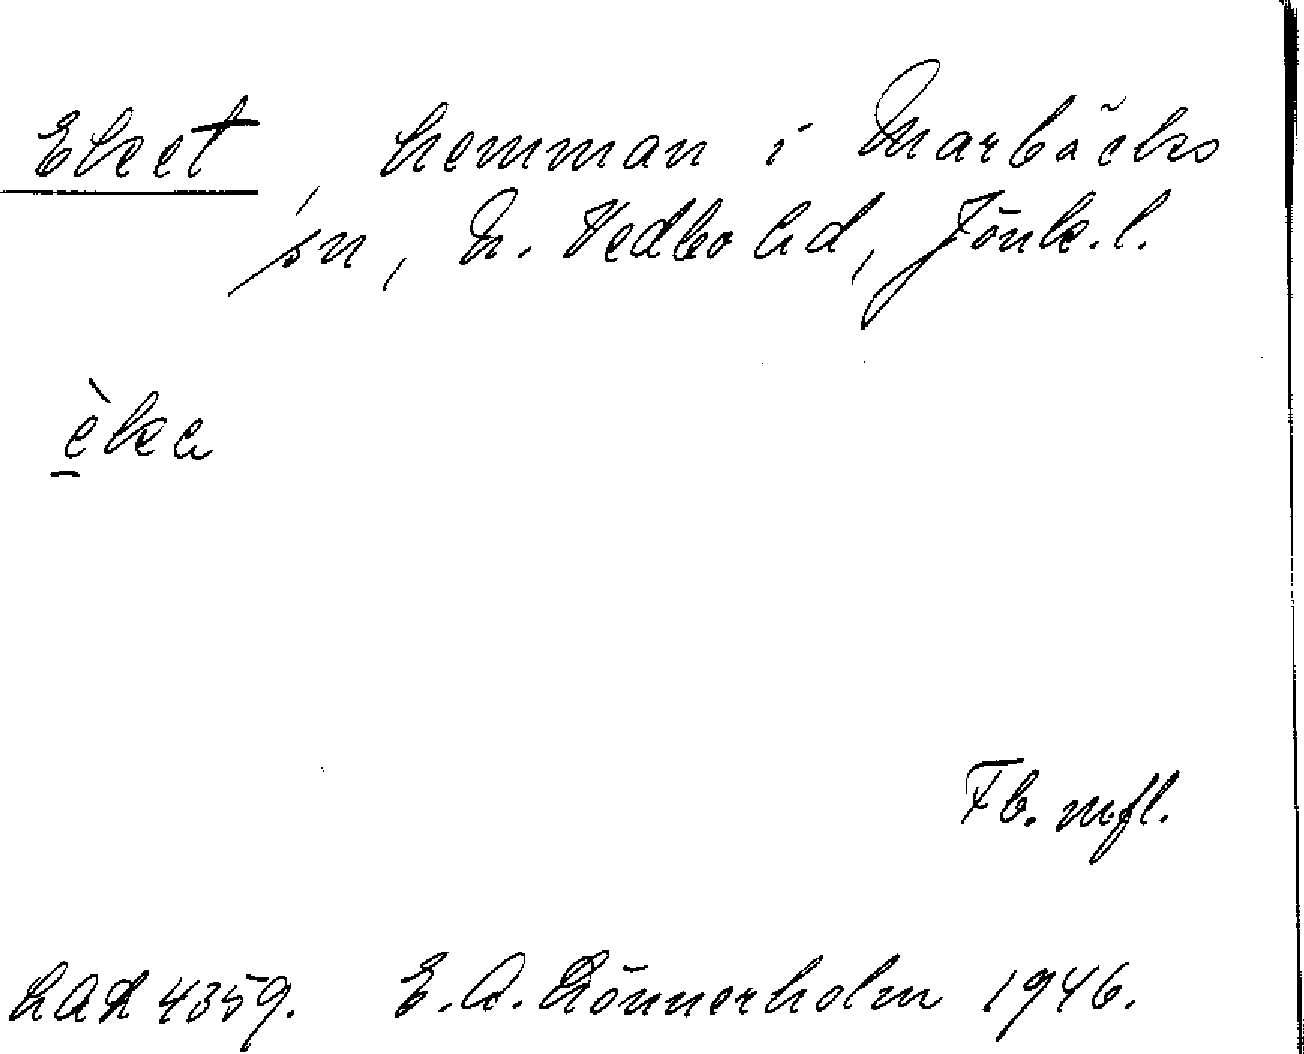 Eket, hemman i Marbäcks
sn, N. Vedbo hd, Jönk. l.
èka
Fb. mfl.
LAL 4359. E. A. Lönnerholm 1946.